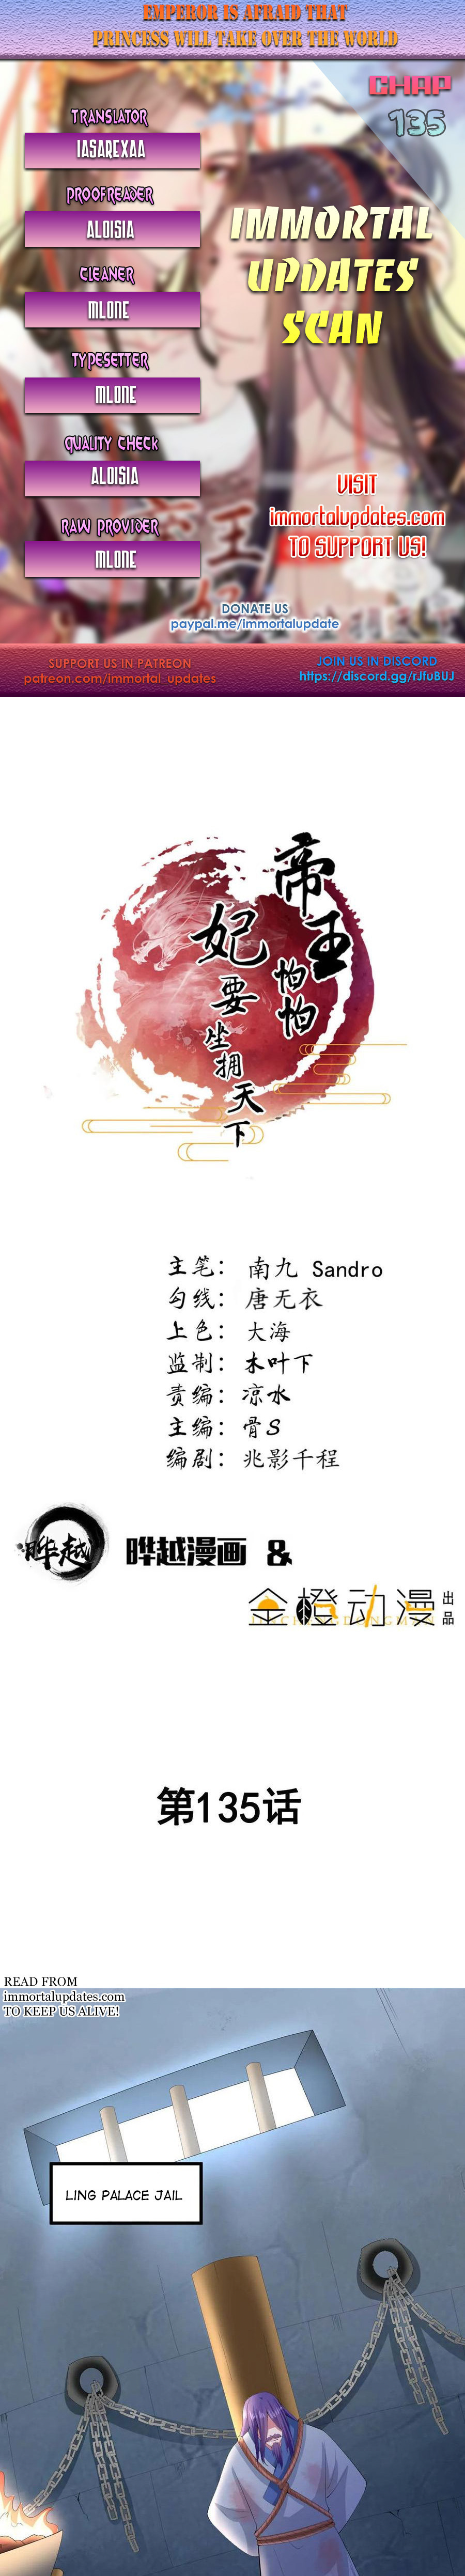 EMPEROR IS AFRAID THAT
PRINCESS WILL TAKE OVER THE WORLD
CHAP
135
TRANSLATOR
IASAREXAA
PROOFREADER
ALOISIA
CLEANER
MLONE
TYPESETTER
MLONE
QUALITY CHECK
ALOISIA
RAW PROVIDER
MLONE
IMMORTAL
UPDATES
SCAN
VISIT
immortalupdates.com
TO SUPPORT US!
DONATE US
paypal.me/immortalupdate
SUPPORT US IN PATREON
patreon.com/immortal_updates
JOIN US IN DISCORD
https://discord.gg/rJfuBUJ
帝王怕怕
妃要坐拥天下
主笔：南九 Sandro
勾线：唐无衣
上色：大海
监制：木叶下
责编：凉水
主编：骨S
编剧：兆影千程
晔越
晔越漫画 &
金橙动漫 出品
第135话
READ FROM
immortalupdates.com
TO KEEP US ALIVE!
LING PALACE JAIL